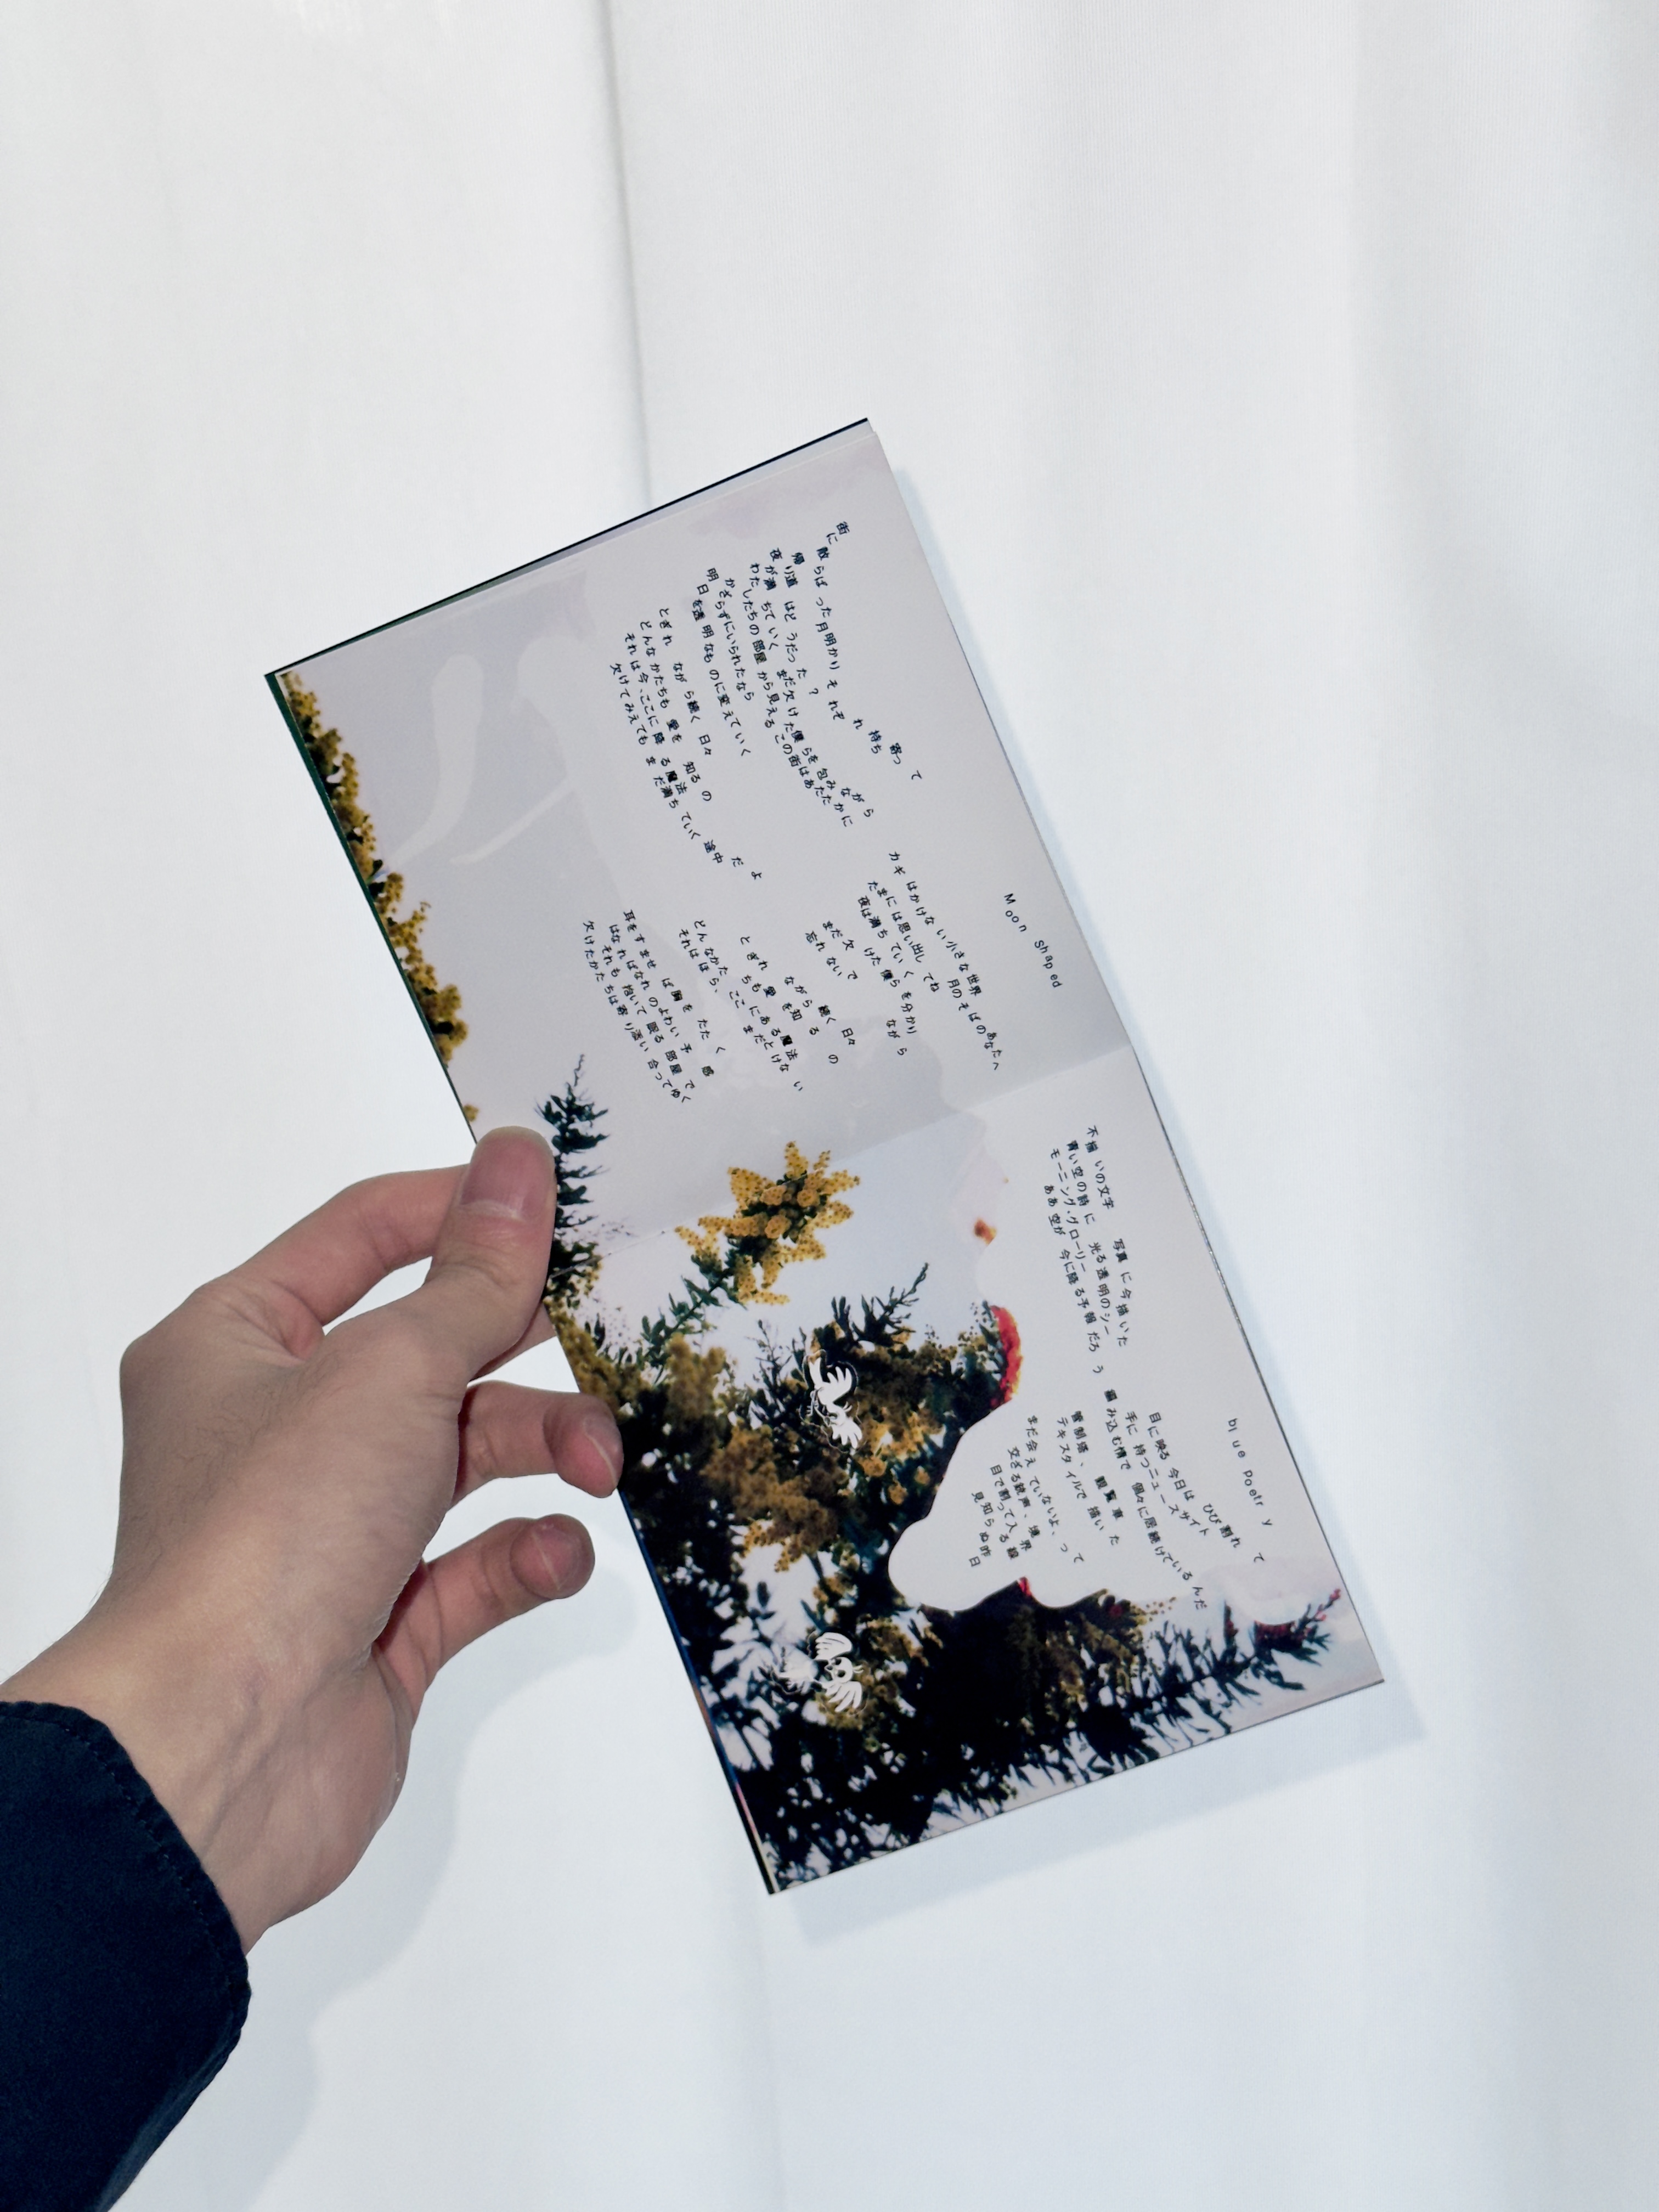 Moon Shaped
街に散らばった月明かり それぞれ持ち寄って
帰り道はどうだった？
夜が満ちていく まだ欠けた僕らを包みながら
わたしたちの部屋から見える この街はあたたかに
かざらずにいられたなら
明日を透明なものに変えていく
とぎれながら続く日々
どんなかたちも愛を知るの
それは今、ここに降る魔法
欠けてみえても まだ満ちていく途中だよ
カギはかけない小さな世界 月のそばのあなたへ
たまには思い出してね
夜は満ちていく まだ欠けた僕らを分かりながら
忘れないで
とぎれながら続く日々
どんなかたちも愛を知るの
それはほら、ここにある魔法
まだとけない
耳をすませば胸をたたく
はなればなれのよわい予感
それも抱いて眠る部屋で
欠けたかたちは寄り添い合ってゆく
blue poetry
不揃いの文字 写真に今描いた
青い空の詩に光る透明のシーン
モーニング・グローリー
ああ空が今に降る予報だろう
目に映る今日はひび割れて
手に持つニュースサイト
編み込む情で個々に居続けているんだ
管制塔、観覧車
テキスタイルで描いた
まだ会えていないよ、って
交ざる銃声、境界
目で割って入る線
見知らぬ昨日